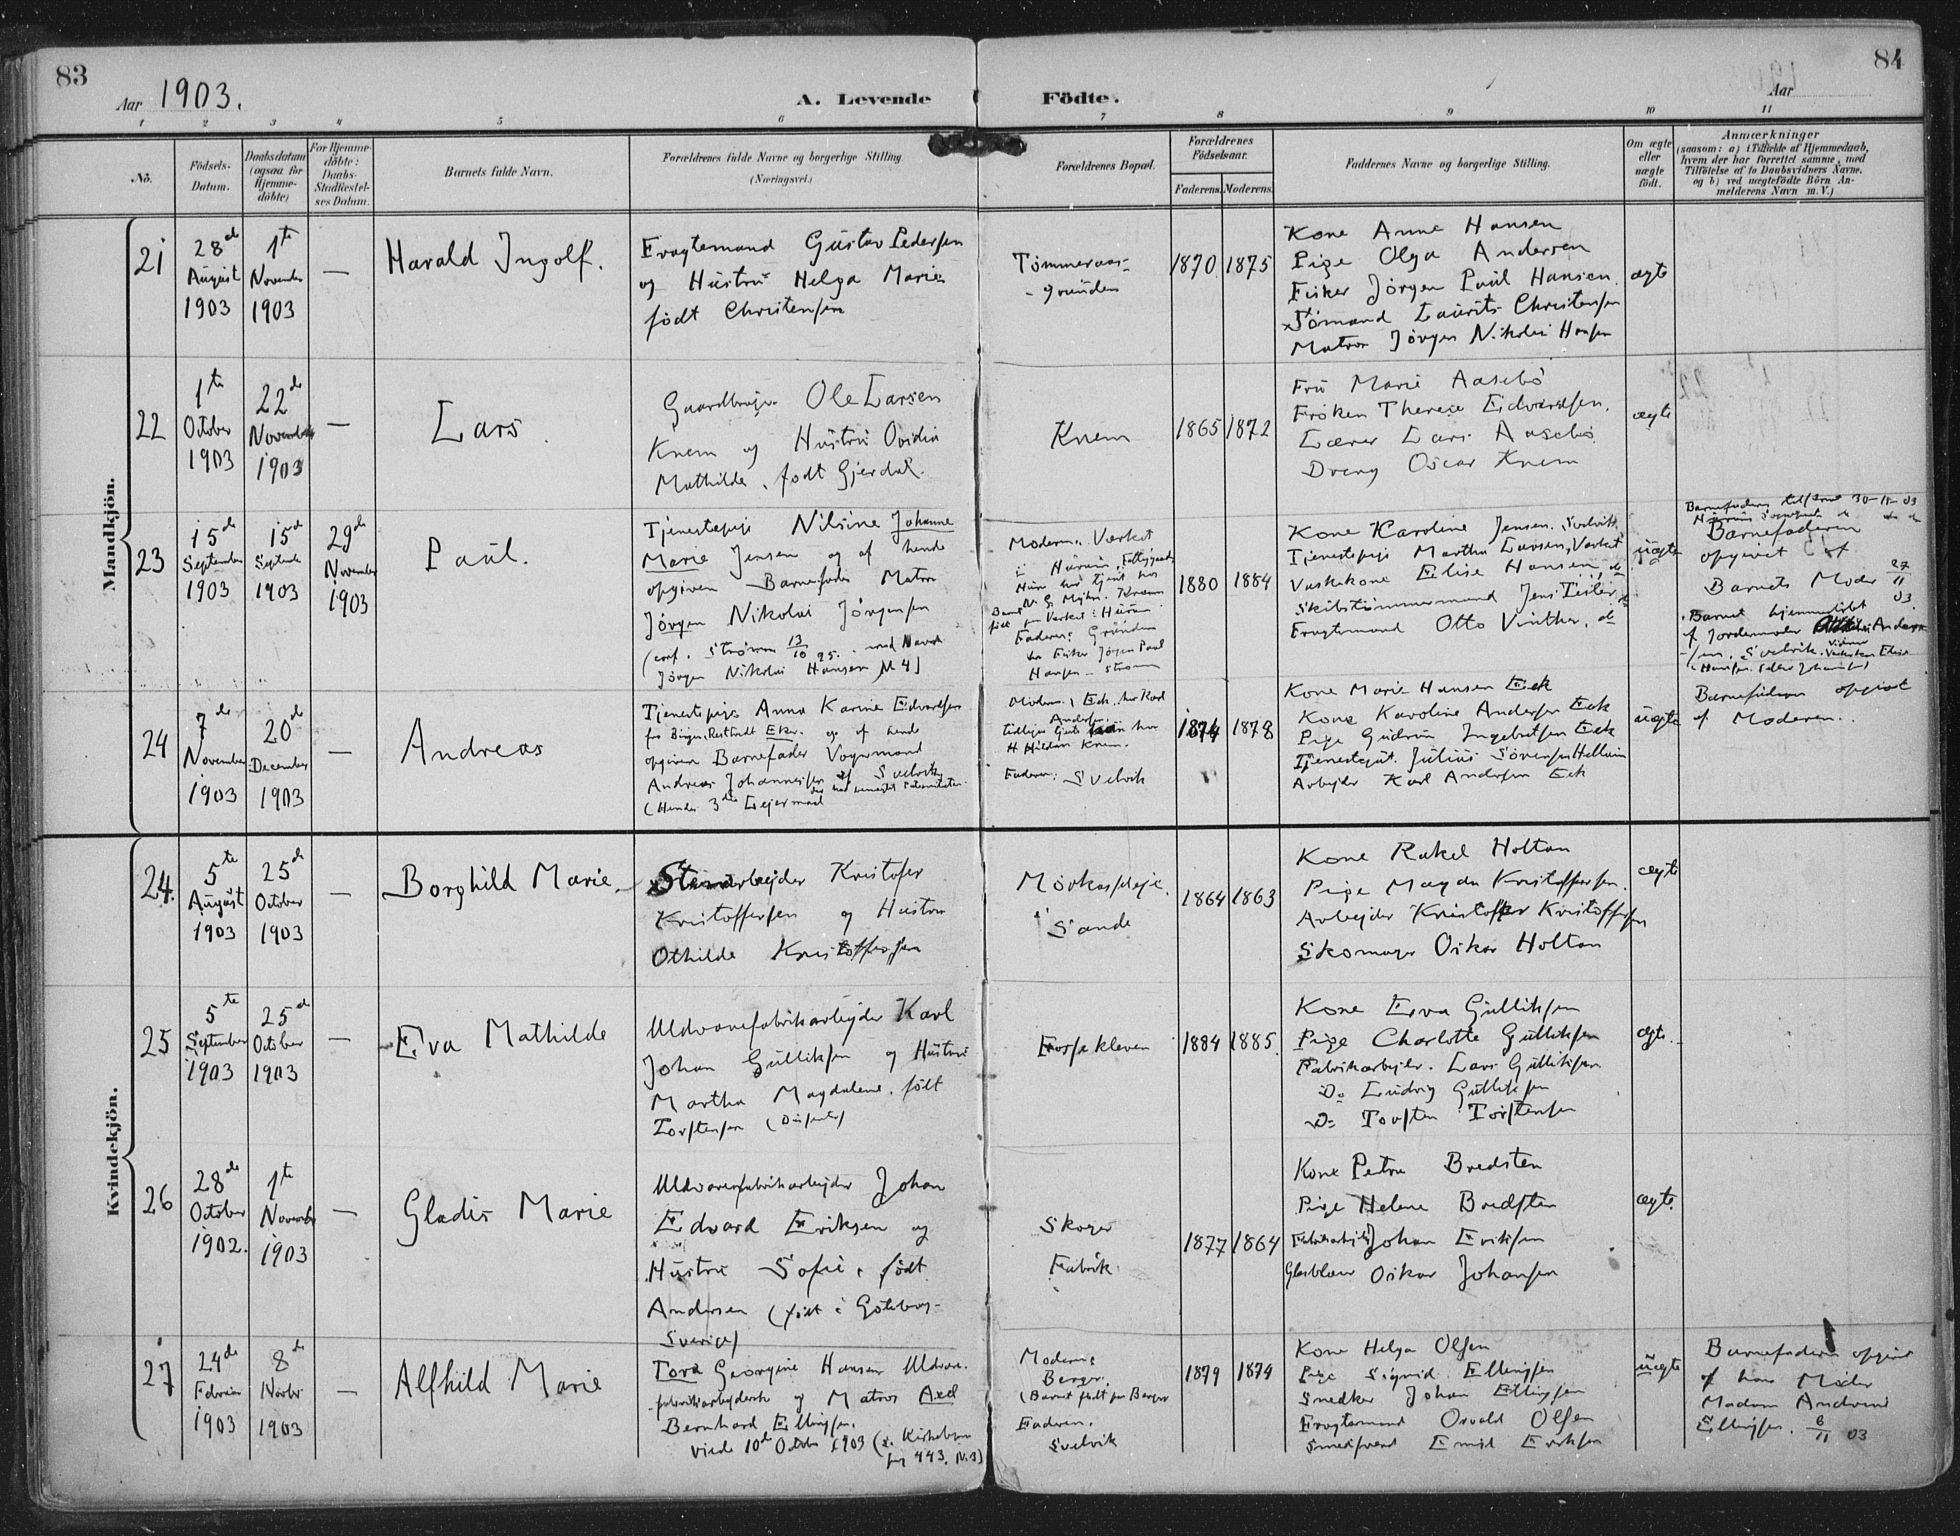 83
Aar 1903.
A. Levende
Födte.
84
Aar
1 2 3 4 5 6 7 8 9 10 11
No.
Födsels-Datum.
Daabsdatum (ogsaa for Hjemme-döbte)
For Hjemme-döbte: Daabs-Stadfæstel-ses Datum.
Barnets fulde Navn.
Forældrenes fulde Navne og borgerlige Stilling.
(Næringsvei.)
Forældrenes Bopæl.
Forældrenes Födselsaar.
Faderens. Moderens.
Faddernes Navne og borgerlige Stilling.
Om ægte eller uægte födt.
Anmærkninger
(saasom: a) i Tilfælde af Hjemmedaab,
hvem der har forrettet samme, med
Tilföielse af to Daabsvidners Navne.
og b) ved uægtefödte Börn An-
melderens Navn m. V.)
Mandkjön.
21
28de August 1903
1te November 1903
—
Harald Ingolf.
Fragtemand Gustav Pedersen
og Hustru Helga Marie
født Christensen
Tømmeraas-
-grunden
1870 1875
Kone Anne Hansen
Pige Olga Andersen
Fisker Jörgen Paul Hansen.
Sømand Laurits Christensen
Matros Jörgen Nikolai Hansen
ægte
22
1te October 1903
22de November 1903
—
Lars
Gaardbruger Ole Larsen
Knem og Hustru Ovidia
Mathilde, født Gjerdal.
Knem
1865 1872
Fru Marie Aasebö
Fröken Therese Edvardsen.
Lærer Lars Aasebö
Dreng Oscar Knem
ægte
23
15de September 1903
15de Septembr 1903
29de November 1903
Paul.
Tjenestepige Nilsine Johanne
Marie Jensen og af hende
opgiven Barnefader Matros
Jörgen Nikolai Jörgensen
(conf. Strömm 13/10 95. med Navn
Jörgen Nikolai Hansen N 4)
Moderen: Værket
Faderen: Grunden
hos Fisker Jörgen Paul
Hansen - Strömm
1880 1884
Kone Karoline Jensen. Svelvik
Tjenestepige Martha Larsen, Værket
Vaskekone Elise Hansen, do
Skibstömmermand Jens Teiler do
Fragtemand Otto Vinther, do
uægte
Barnefaderen tilskrevet 30-11-03
Barnefaderen
opgivet af
Barnets Moder 27/11 03.
Barnet hjemmedöbt
af Jordemoder Andersen
24
7de November 1903
20de December 1903
—
Andreas
Tjenestepige Anna Karine Edvardsen
opgiven Barnefader Vognmand
Andreas Johannesen af Svelvik,
(Hendes 3die Leiermaal
Moderen, Eek hos Karl
Andersen
H Hilden Knem.
Faderen: Svelvik
1874 1878
Kone Marie Hansen Eek
Kone Karoline Andersen Eek
Pige Gudrun Ingebretsen Eek
Tjenestegut Julius Sörensen Hellum
Arbejder Karl Andersen Eek
uægte
Barnefaderen opgivet
af Moderen.
Kvindekjön.
24.
5te August 1903
25de October 1903
—
Borghild Marie
Stenarbejder Kristofer
Kristoffersen og Hustru
Othilde Kristoffersen
Mörkasplejs.
Sande
1864 1863
Kone Rakel Holtan
Pige Magda Kristoffersen.
Arbejder Kristoffer Kristoffersen
Skomager Oskar Holtan
ægte
25
5te September 1903
25de October 1903
—
Eva Mathilde
Uldvarefabrikarbejder Karl
Johan Gulliksen og Hustru
Martha Magdalene. født
Torstensen
Fossekleven
1884 1885.
Kone Eva Gulliksen
Pige Charlotte Gulliksen
Fabrikarbejder. Lars Gulliksen
Do Ludvig Gulliksen
Do Torsten Torstensen
ægte.
26
28de October 1902.
1te November 1903
—
Gladis Marie
Uldvarefabrikarbejder Johan
Edvard Eriksen og
Hustru Sofie, født
Andersen (født i Göteborg-
Sverige)
Skoger
Fabrik
1877 1864
Kone Petra Bredsten
Pige Helene Bredsten
Fabrikarbejder Johan Eriksen
Glasblæser Oskar Johansen
ægte.
27
24de Februar 1903
8de Novbr 1903
—
Alfhild Marie
Tora Georgine Hansen Uldvare-
fabrikarbejderske og Matros Axel
Bernhard Ellingsen.
viede 10de October 1903 (se Kirkebogen
pag 443, N. 3)
Moderen:
Berger.
(Barnet født paa Berger
Faderen.
Svelvik
1879 1874
Kone Helga Olsen
Pige Sigrid Ellingsen
Snedker Johan Ellingsen
Fragtemand Osvald Olsen
Smedsvend Emil Eriksen
uægte
Barnefaderen opgivet
af hans Moder
Madam Andrine
Ellingsen. 8/11 03